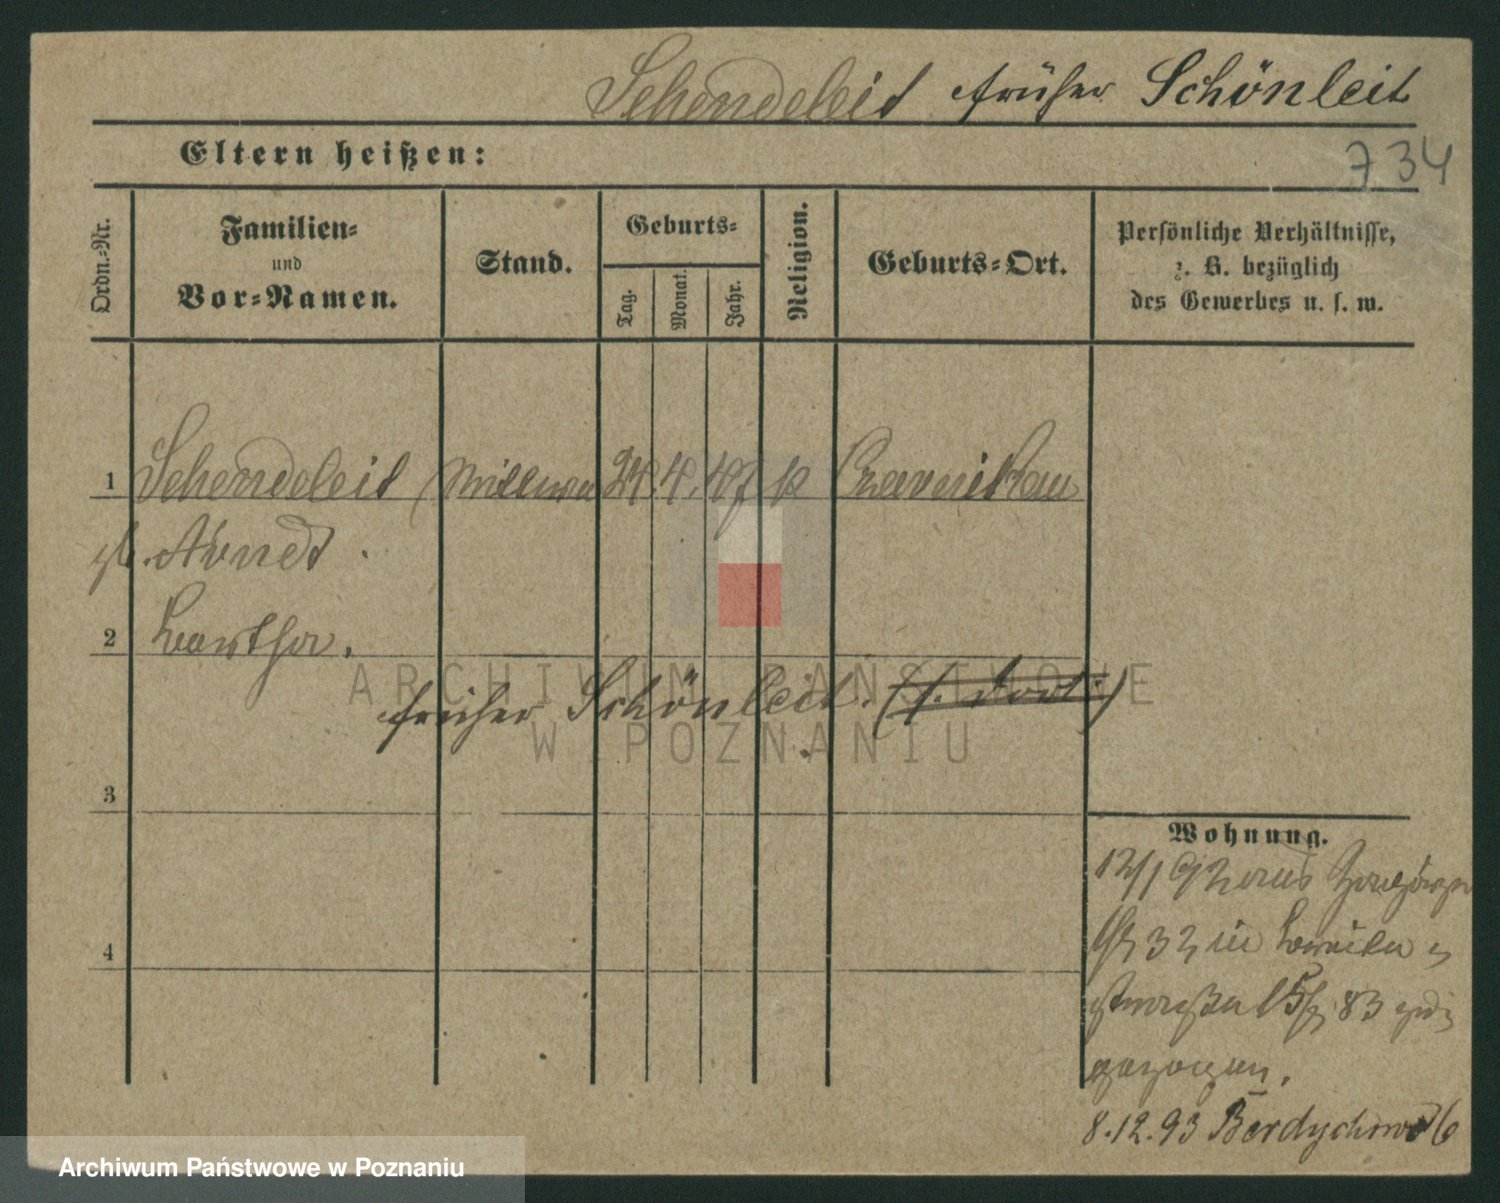 Schendeleit früher Schönleit
Eltern heißen:
734
Ordn.-Nr.
Familien-
und
Vor-Namen.
Stand.
Geburts-
Tag.
Monat.
Jahr.
Religion.
Geburts-Ort.
Persönliche Verhältnisse,
z. B. bezüglich
des Gewerbes u. s. w.
1 Schendeleit Wittwe 24. 4. 47 k Czarnikau
gb. Arndt
2 Bertha.
früher Schönleit. (s. dort)
3
4
Wohnung.
12/1 92 aus
32 in Breite
straße 15 83
gezogen.
8.12.93 Berdychowo 6
ARCHIWUM PAŃSTWOWE
W POZNANIU
Archiwum Państwowe w Poznaniu